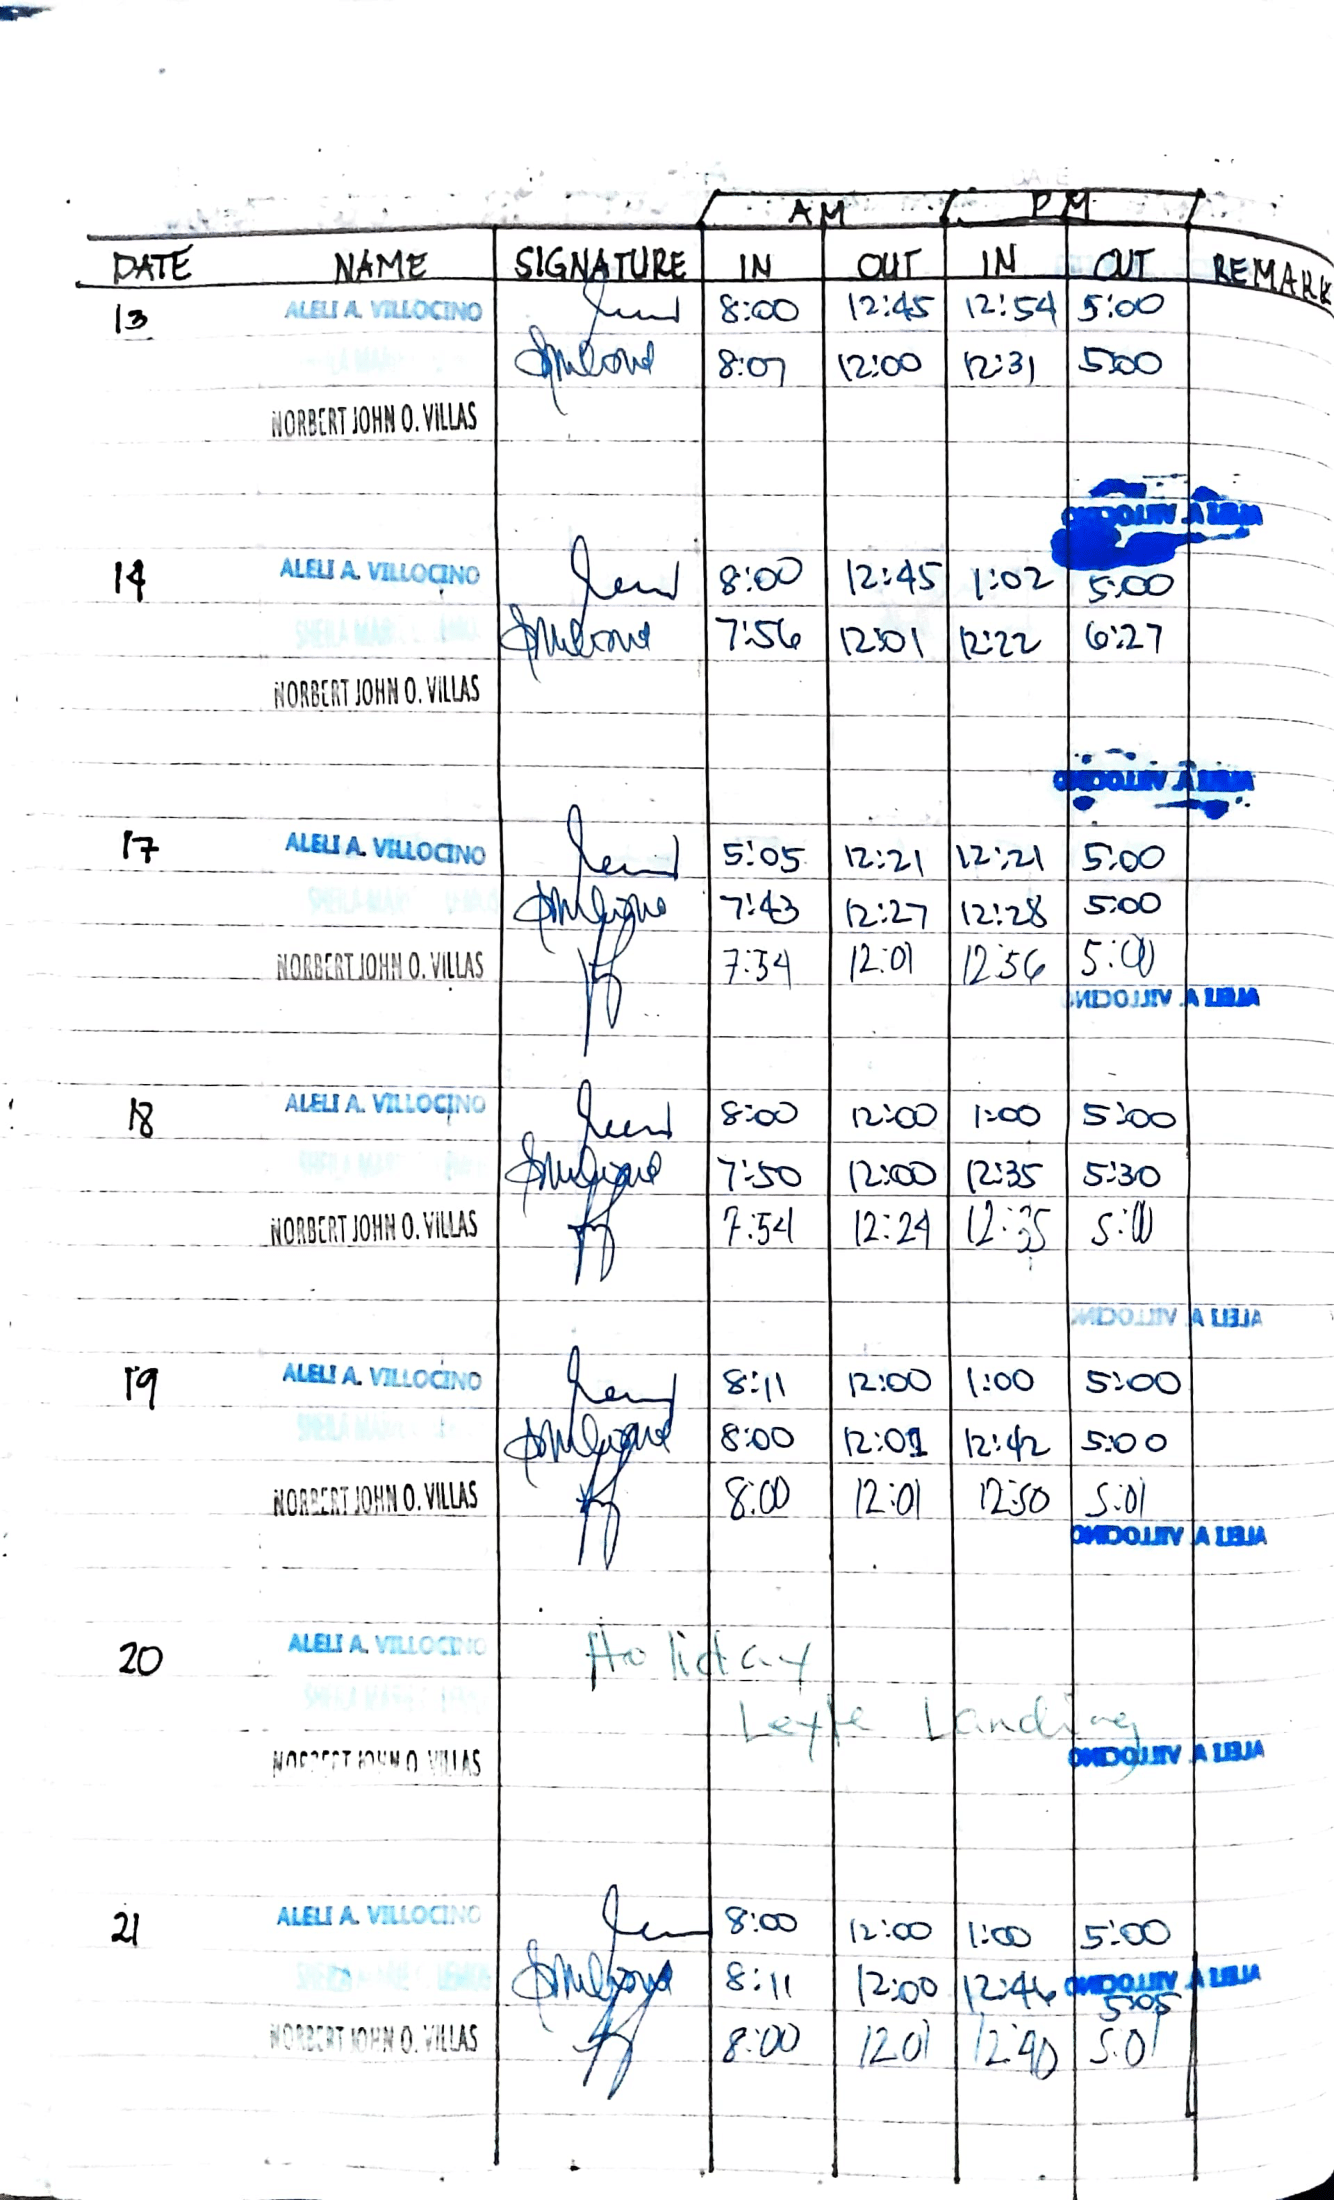 AM PM
DATE NAME SIGNATURE IN OUT IN OUT REMARK
13 ALELI A. VILLOCINO 8:00 12:45 12:54 5:00
8:07 12:00 12:31 5:00
NORBERT JOHN O. VILLAS
ALELI A. VILLOCINO
14 ALELI A. VILLOCINO 8:00 12:45 1:02 5:00
7:56 12:01 12:22 6:27
NORBERT JOHN O. VILLAS
ALELI A. VILLOCINO
17 ALELI A. VILLOCINO 5:05 12:21 12:21 5:00
7:43 12:27 12:28 5:00
NORBERT JOHN O. VILLAS 7:54 12:01 12:56 5:00
ALELI A. VILLOCINO
18 ALELI A. VILLOCINO 8:00 12:00 1:00 5:00
7:50 12:00 12:35 5:30
NORBERT JOHN O. VILLAS 7:54 12:24 12:35 5:00
ALELI A. VILLOCINO
19 ALELI A. VILLOCINO 8:11 12:00 1:00 5:00
8:00 12:01 12:42 5:00
NORBERT JOHN O. VILLAS 8:00 12:01 12:50 5:01
ALELI A. VILLOCINO
20 ALELI A. VILLOCINO Holiday
Leyte Landing
NORBERT JOHN O. VILLAS ALELI A. VILLOCINO
21 ALELI A. VILLOCINO 8:00 12:00 1:00 5:00
8:11 12:00 12:46 ALELI A. VILLOCINO
5:05
NORBERT JOHN O. VILLAS 8:00 12:01 12:40 5:01